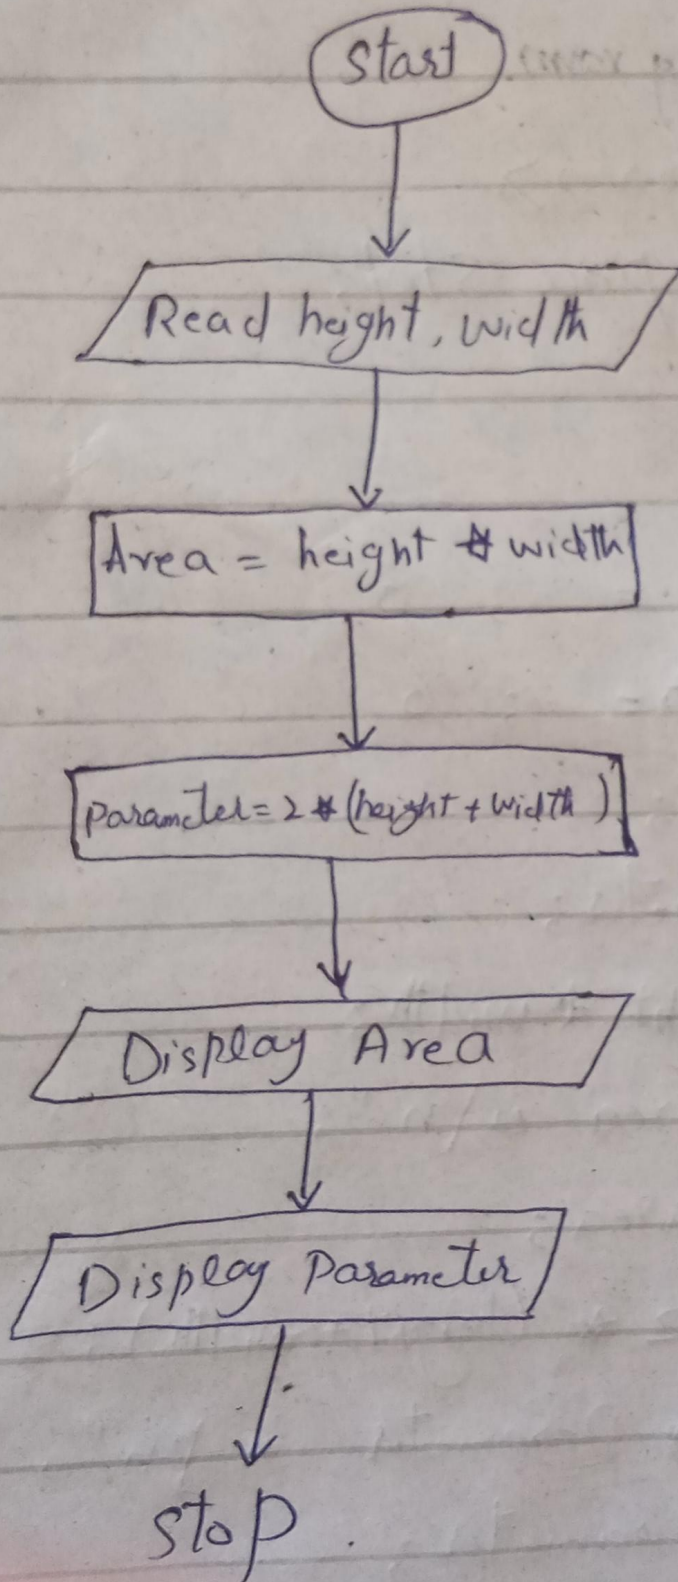 Start
Read height, width
Area = height * width
Parameter = 2 * (height + width)
Display Area
Display Parameter
Stop.